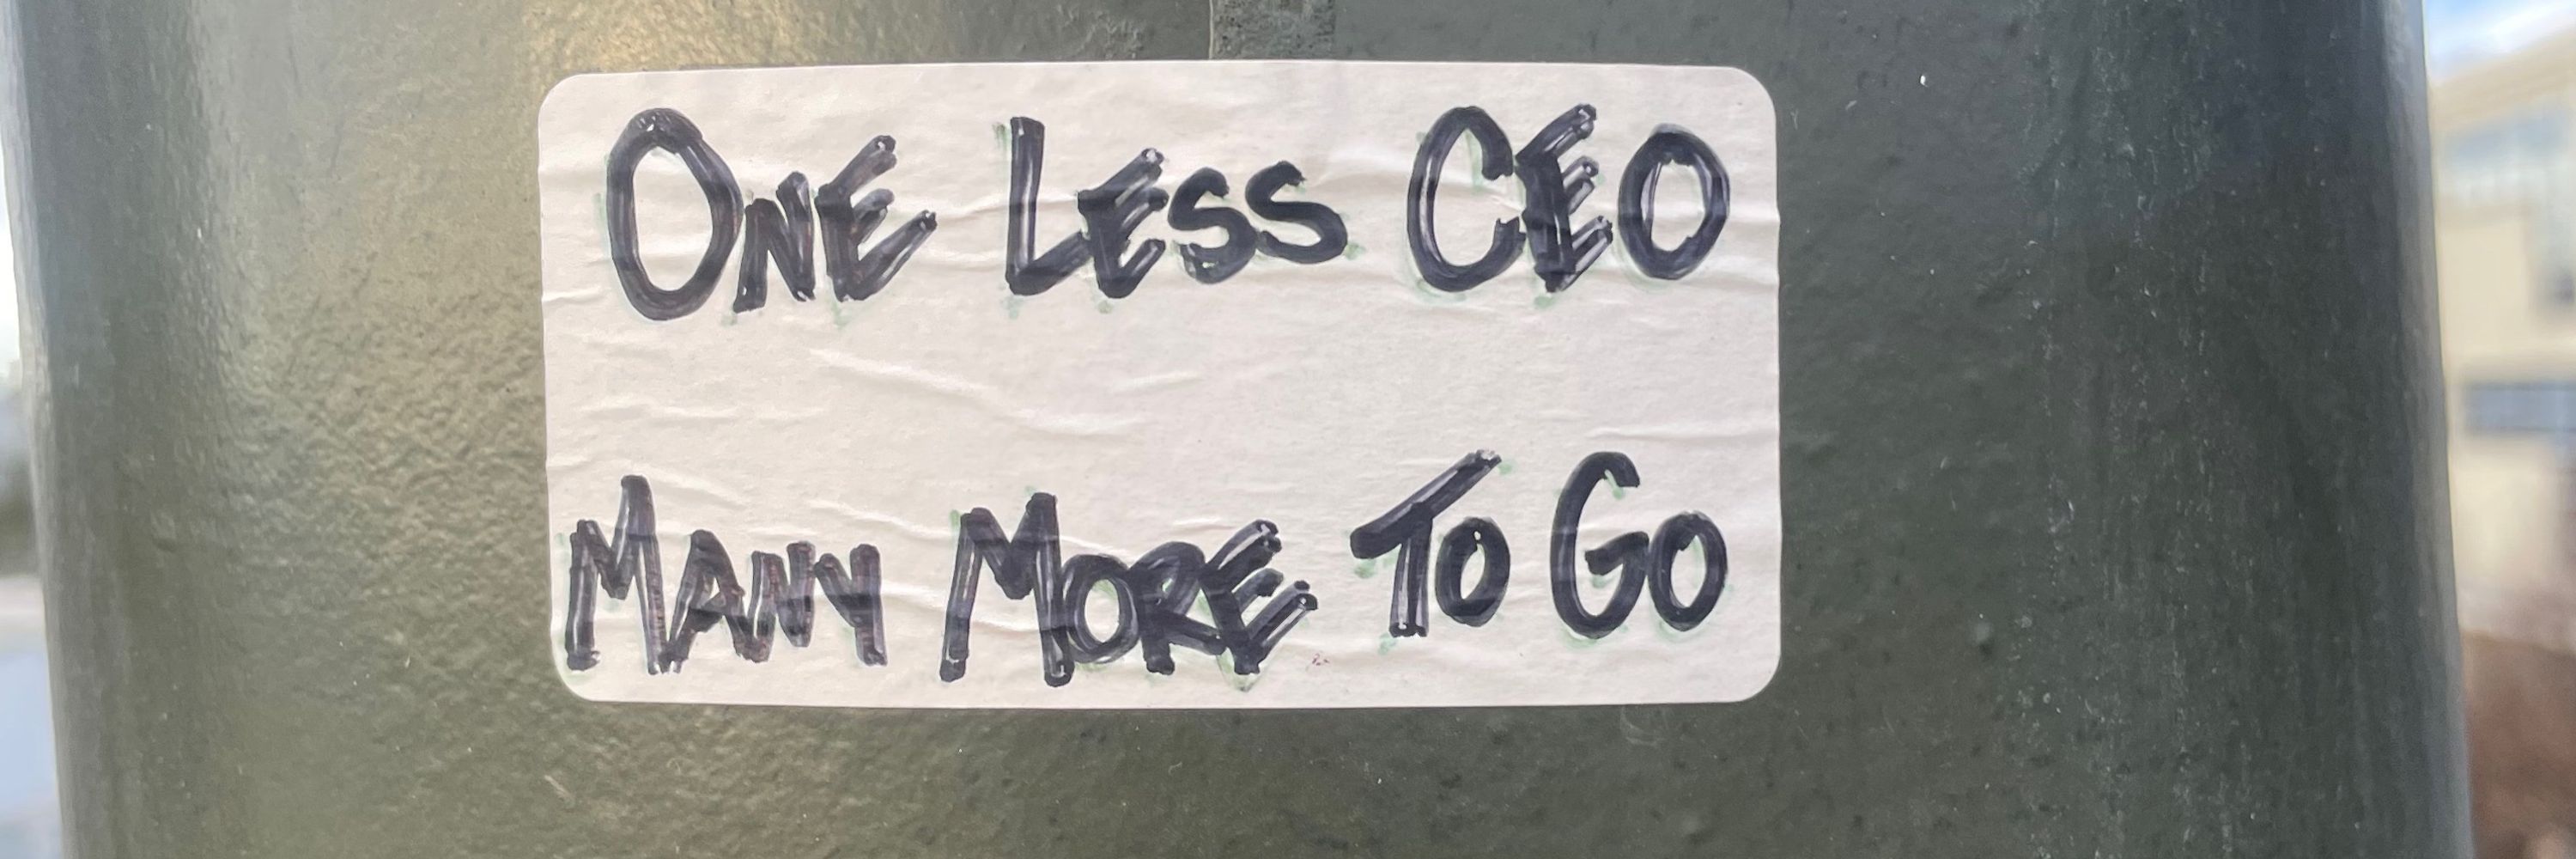 One Less CEO
Many More To Go